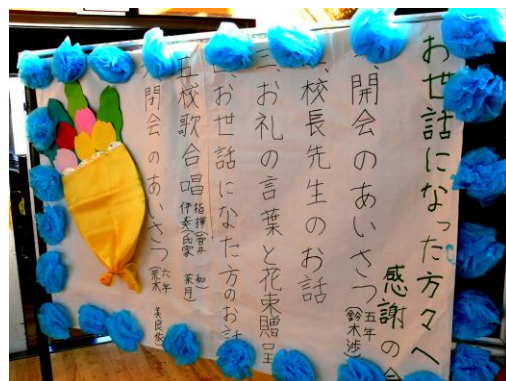 お世話になった方々へ
感謝の会
一、開会のあいさつ 五年(鈴木渉)
二、校長先生のお話
三、お礼の言葉と花束贈呈
四、お世話になった方のお話
五、校歌合唱 指揮( 和)
伊奏(氏家 菜月)
閉会のあいさつ 六年(荒木 美良